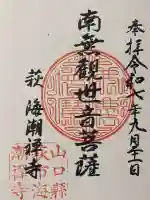 奉拝 令和七年九月十一日
南無觀世音菩薩
萩 海潮禅寺
山口縣
萩市海
潮禅寺